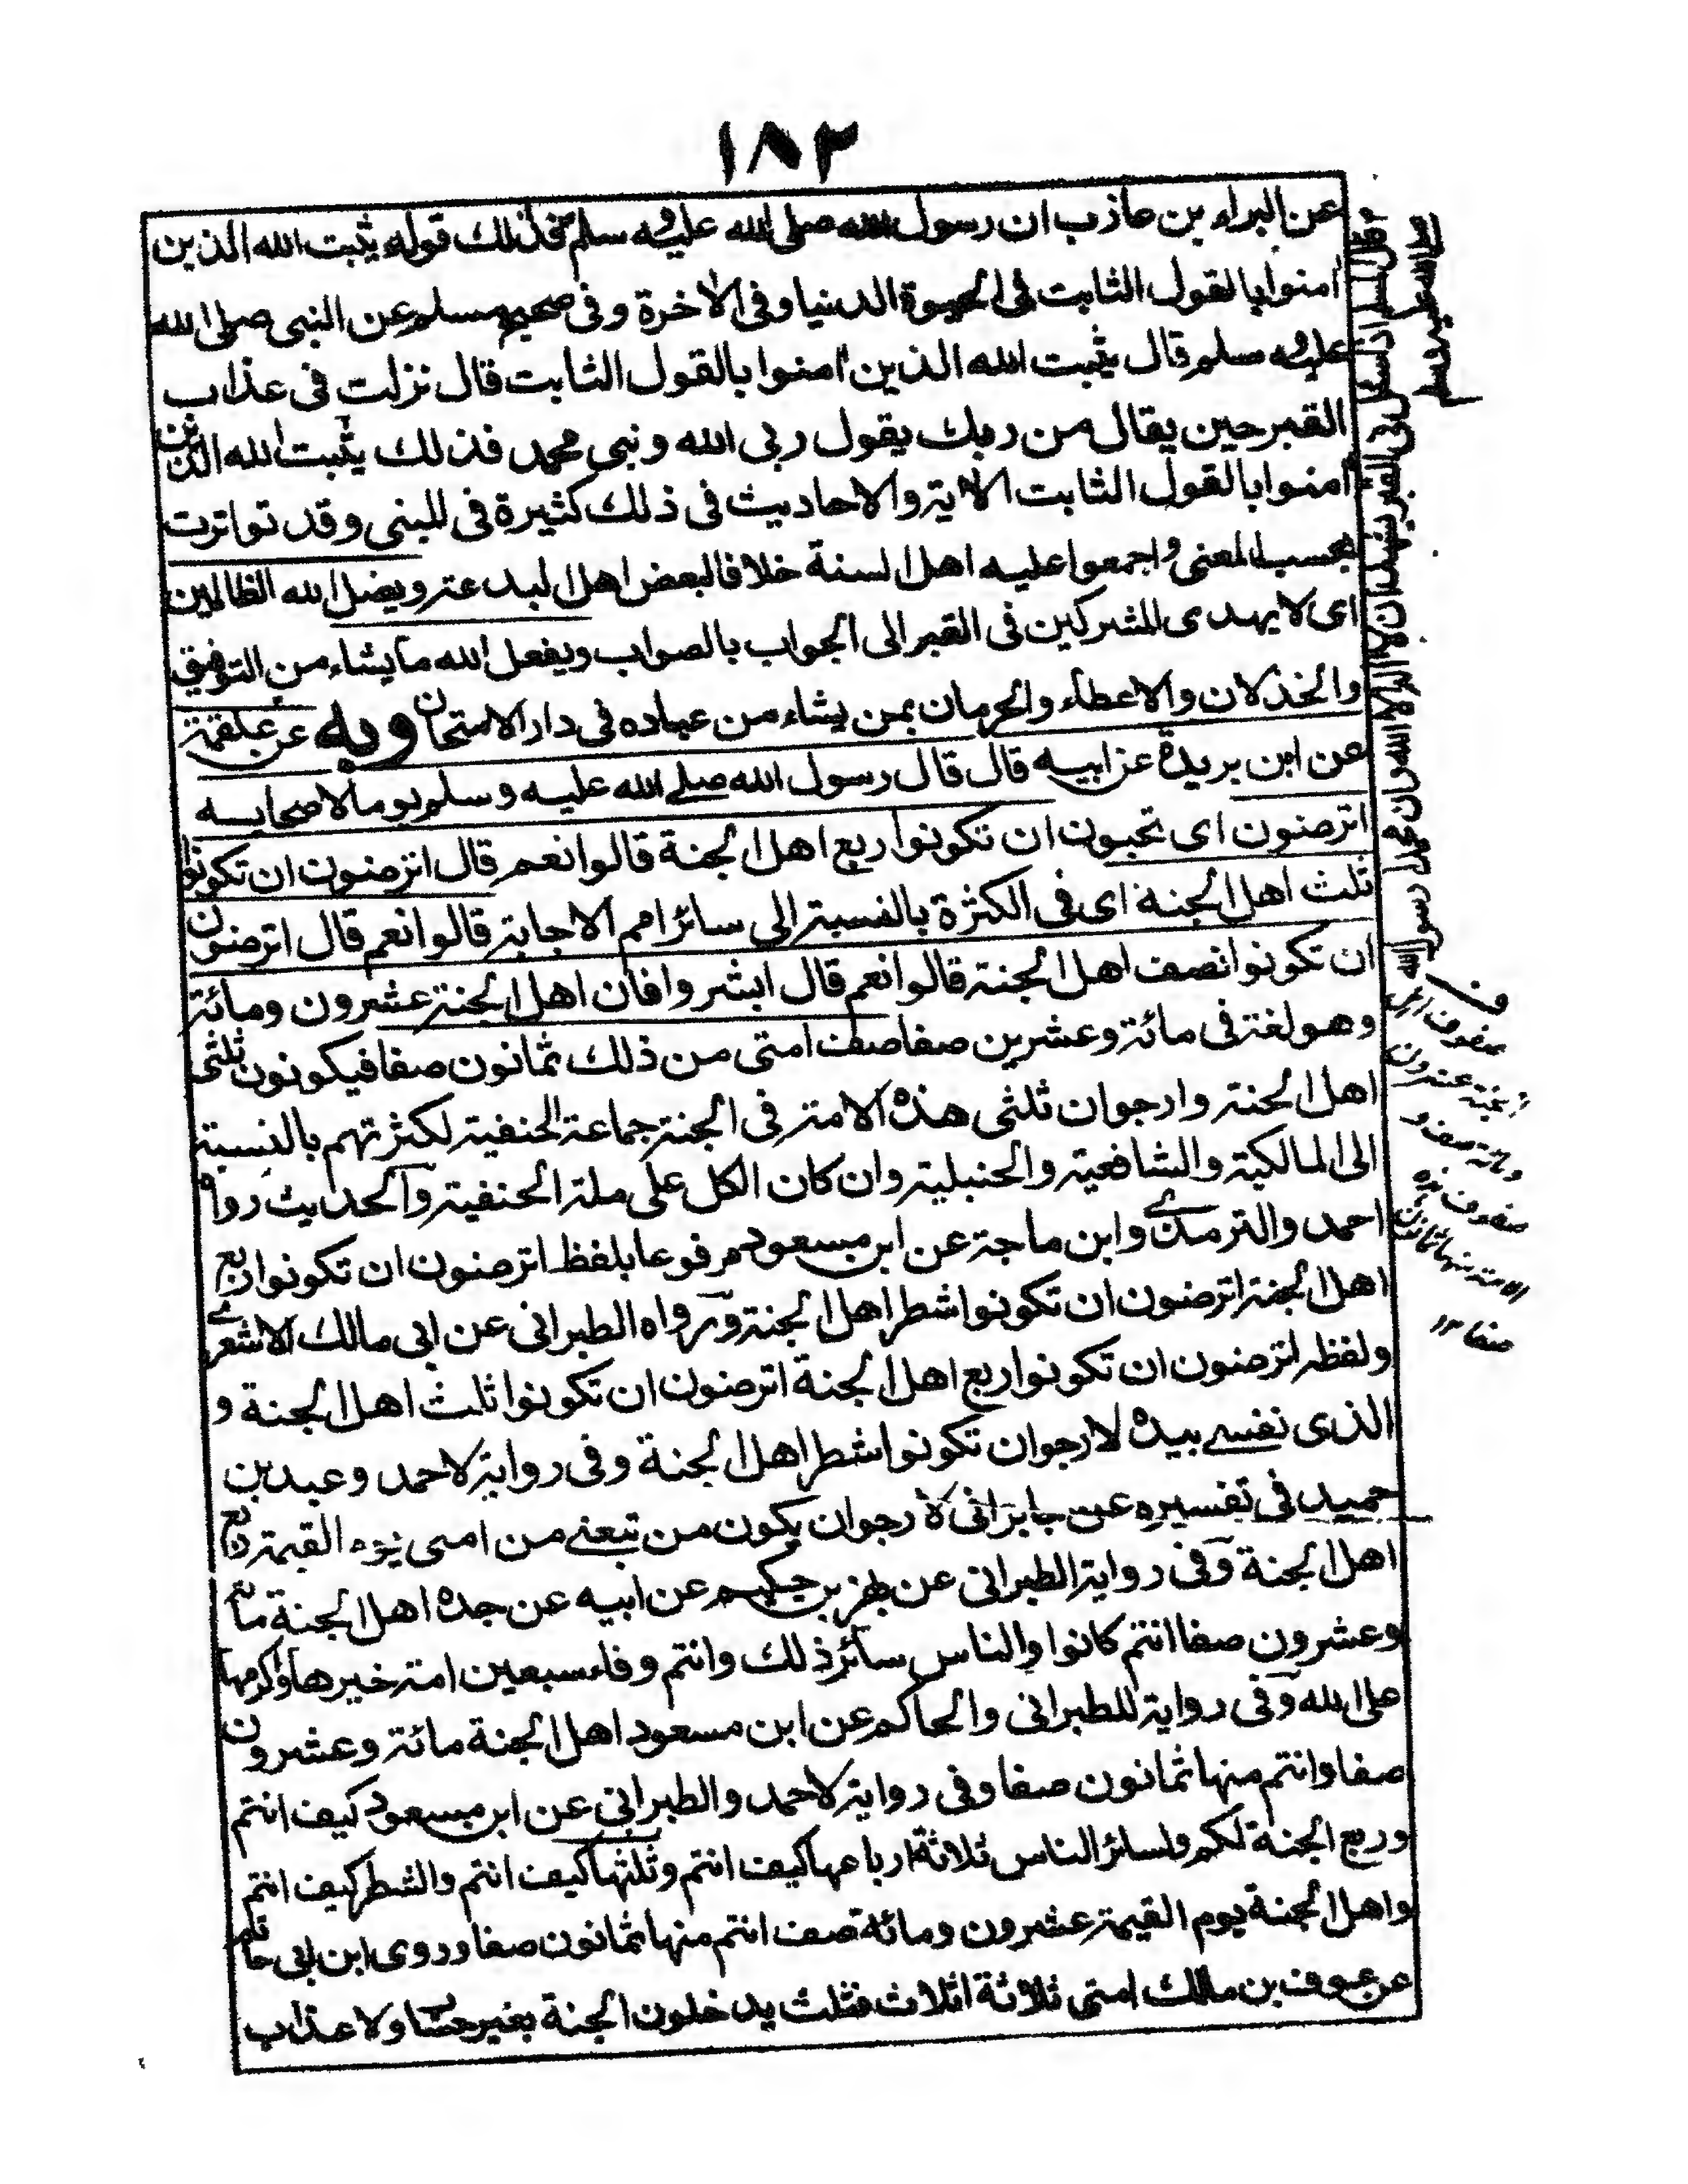 ١٨٢
عن البراء بن عازب ان رسول الله صلى الله عليه وسلم فذلك قوله يثبت الله الذين
امنوا بالقول الثابت فى الحيوة الدنيا وفى الاخرة وفى صحيح مسلم عن النبى صلى الله
عليه وسلم قال يثبت الله الذين امنوا بالقول الثابت قال نزلت فى عذاب
القبر حين يقال من ربك يقول ربى الله ونبى محمد فذلك يثبت الله الذين
امنوا بالقول الثابت الاية والاحاديث فى ذلك كثيرة فى المبنى وقد تواترت
بحسب المعنى واجمعوا عليه اهل السنة خلافا لبعض اهل البدعة ويضل الله الظالمين
اى لا يهدى المشركين فى القبر الى الجواب بالصواب ويفعل الله ما يشاء من التوفيق
والخذلان والاعطاء والحرمان بمن يشاء من عباده فى دار الامتحان وبه عن علقمة
عن ابن بريدة عن ابيه قال قال رسول الله صلے الله عليه وسلم يوما لاصحابه
اترضون اى تحبون ان تكونوا ربع اهل الجنة قالوا نعم قال اترضون ان تكونوا
ثلث اهل الجنة اى فى الكثرة بالنسبة الى سائر امم الاجابة قالوا نعم قال اترضون
ان تكونوا نصف اهل الجنة قالوا نعم قال ابشروا فان اهل الجنة عشرون ومائة
وهو لغة فى مائة وعشرين صفا صف امتى من ذلك ثمانون صفا فيكونون ثلثى
اهل الجنة وارجو ان ثلثى هذه الامة فى الجنة جماعة الحنفية لكثرتهم بالنسبة
الى المالكية والشافعية والحنبلية وان كان الكل على ملة الحنفية والحديث رواه
احمد والترمذے وابن ماجة عن ابن مسعود مرفوعا بلفظ اترضون ان تكونوا ربع
اهل الجنة اترضون ان تكونوا شطر اهل الجنة ورواه الطبرانى عن ابى مالك الاشعرے
ولفظه اترضون ان تكونوا ربع اهل الجنة اترضون ان تكونوا ثلث اهل الجنة و
الذى نفسے بيده لارجو ان تكونوا شطر اهل الجنة وفى رواية لاحمد وعبد بن
حميد فى تفسيره عن جابر انى لارجو ان يكون من تبعنے من امتى يوم القيمة ربع
اهل الجنة وفى رواية الطبرانى عن بهز بن حكيم عن ابيه عن جده اهل الجنة مائة
وعشرون صفا انتم كانوا والناس سائر ذلك وانتم وفاء سبعين امة خيرها واكرمها
على الله وفى رواية للطبرانى والحاكم عن ابن مسعود اهل الجنة مائة وعشرون
صفا وانتم منها ثمانون صفا وفى رواية لاحمد والطبرانى عن ابن مسعود كيف انتم
وربع الجنة لكم ولسائر الناس ثلاثة ارباعها كيف انتم وثلثها كيف انتم والشطر كيف انتم
واهل الجنة يوم القيمة عشرون ومائة صف انتم منها ثمانون صفا وروى ابن ابى حاتم
عن عوف بن مالك امتى ثلاثة اثلاث فثلث يدخلون الجنة بغير حساب ولا عذاب
قال المسلم اذا سئل فى القبر يشهد ان لا اله الا الله وان محمدا رسول الله
صلى الله عليه وسلم
صفوف اهل
الجنة عشرون
ومائة صف و
صفوف هذه
الامة منها ثمانون
صفا ١٢